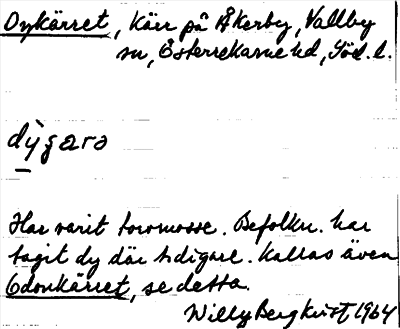 Dykärret, Kärr på Åkerby, Vallby
sn, Österrekarne hd, Söd. l.
dỳgaro
Har varit torvmosse. Befolkn. har
tagit dy där tidigare. Kallas även
Odonkärret, se detta.
Willy Bergkvist 1964